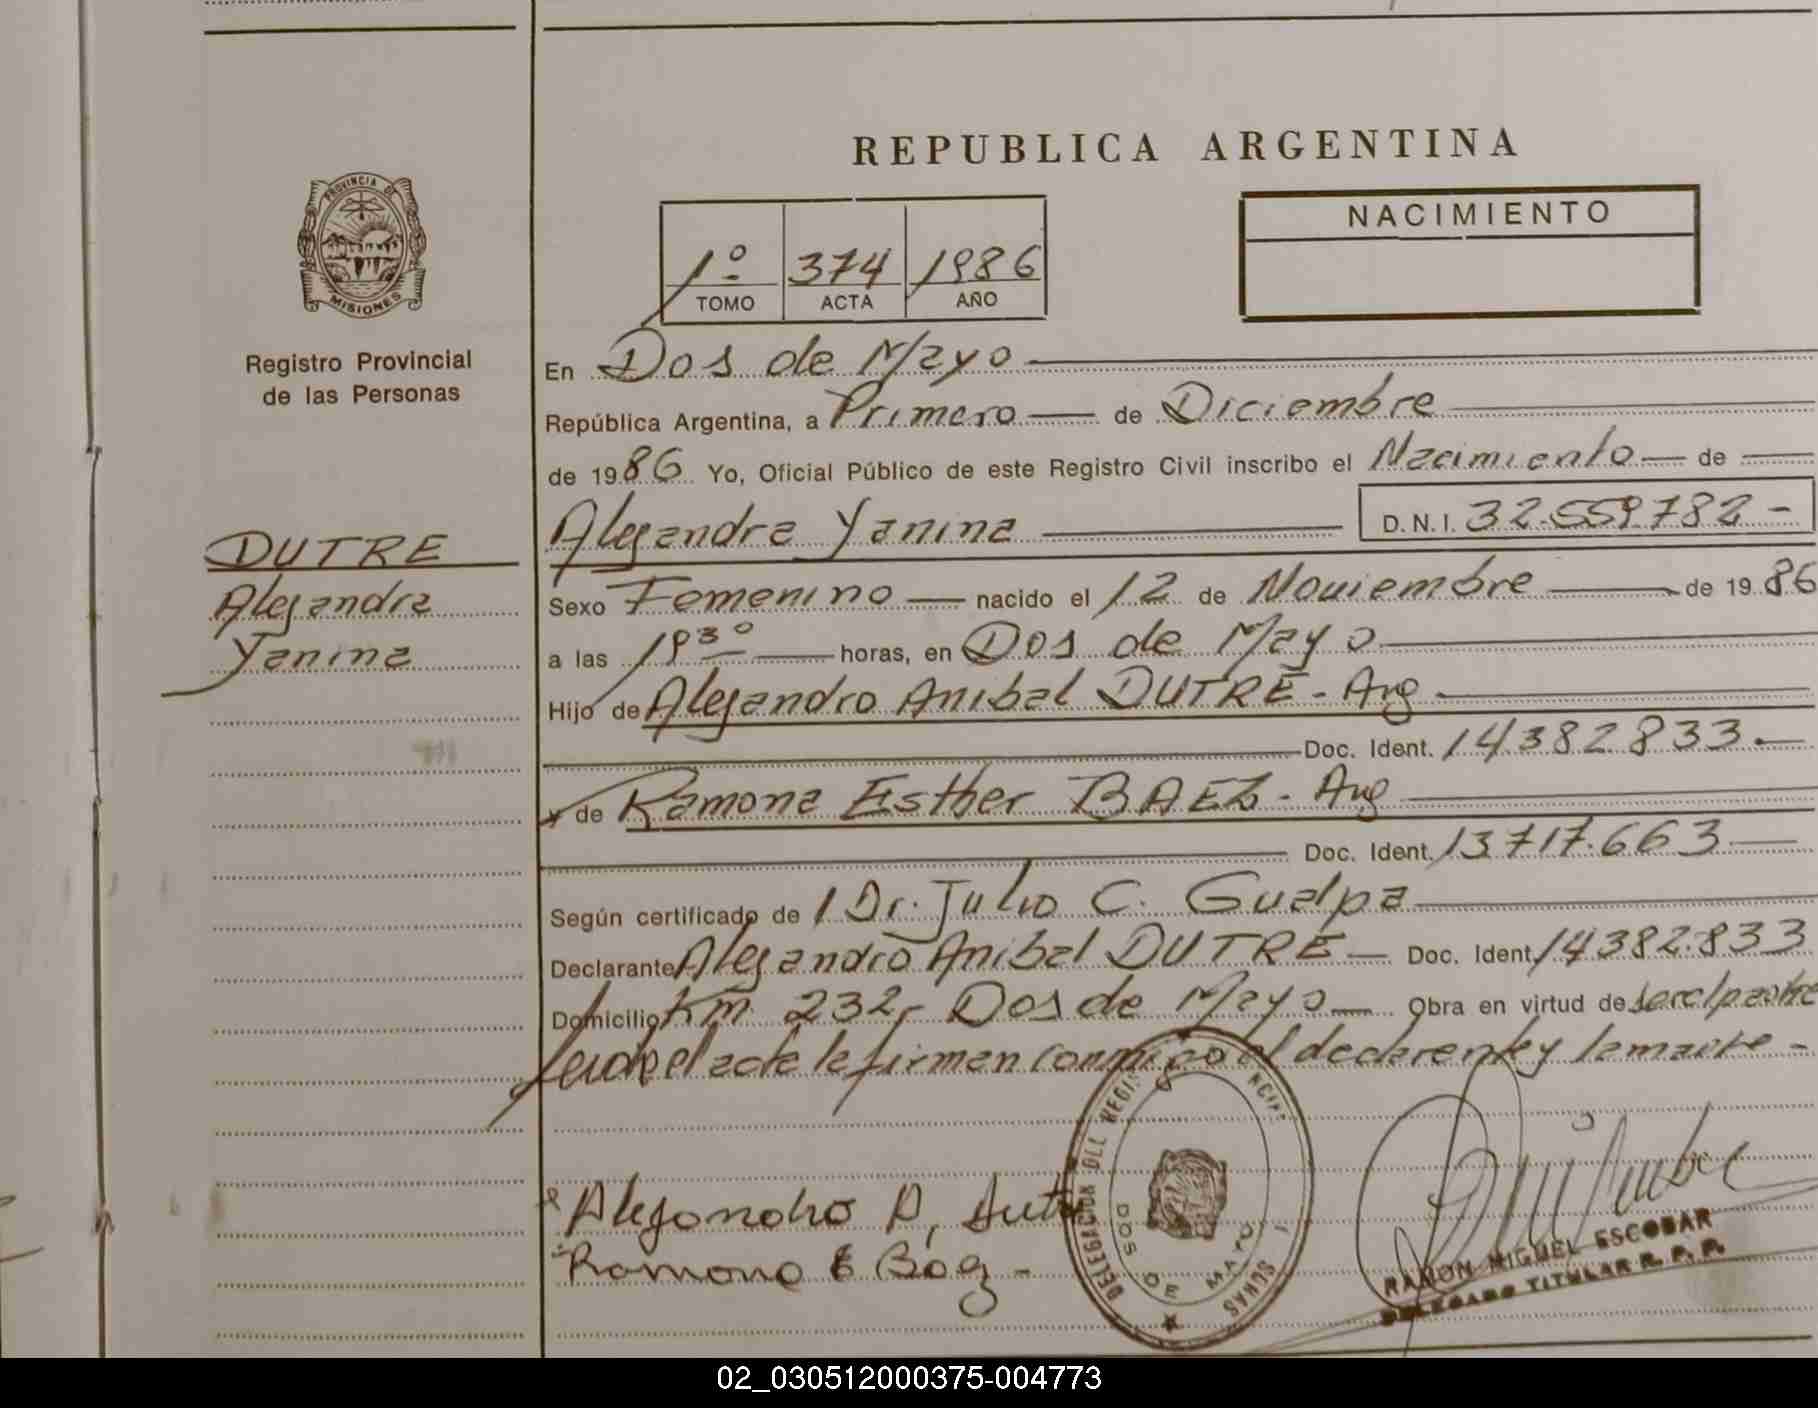 REPUBLICA ARGENTINA
PROVINCIA DE
MISIONES
Registro Provincial
de las Personas
1º 374 1986
TOMO ACTA AÑO
NACIMIENTO
En Dos de Mayo
República Argentina, a Primero de Diciembre
de 1986 Yo, Oficial Público de este Registro Civil inscribo el Nacimiento de
DUTRE
Alejandra
Yanina
Alejandra Yanina D.N.I. 32.559.782-
Sexo Femenino nacido el 12 de Noviembre de 1986
a las 1930 horas, en Dos de Mayo
Hijo de Alejandro Anibal DUTRE - Arg
Doc. Ident. 14382833.
y de Ramona Esther BAEZ - Arg
Doc. Ident. 13717.663
Según certificado de Dr. Julio C. Gualpa
Declarante Alejandro Anibal DUTRE Doc. Ident. 14382.833
Domicilio Km 232 - Dos de Mayo Obra en virtud de ser el padre
leida el acta la firman conmigo el declarante y la madre -
Alejandro A. Dutre
Ramona E Báez -
DELEGACION DEL REGIS NCIA
DOS DE MAYO
RAMON MIGUEL ESCOBAR
DELEGADO TITULAR R. P. P.
02_030512000375-004773